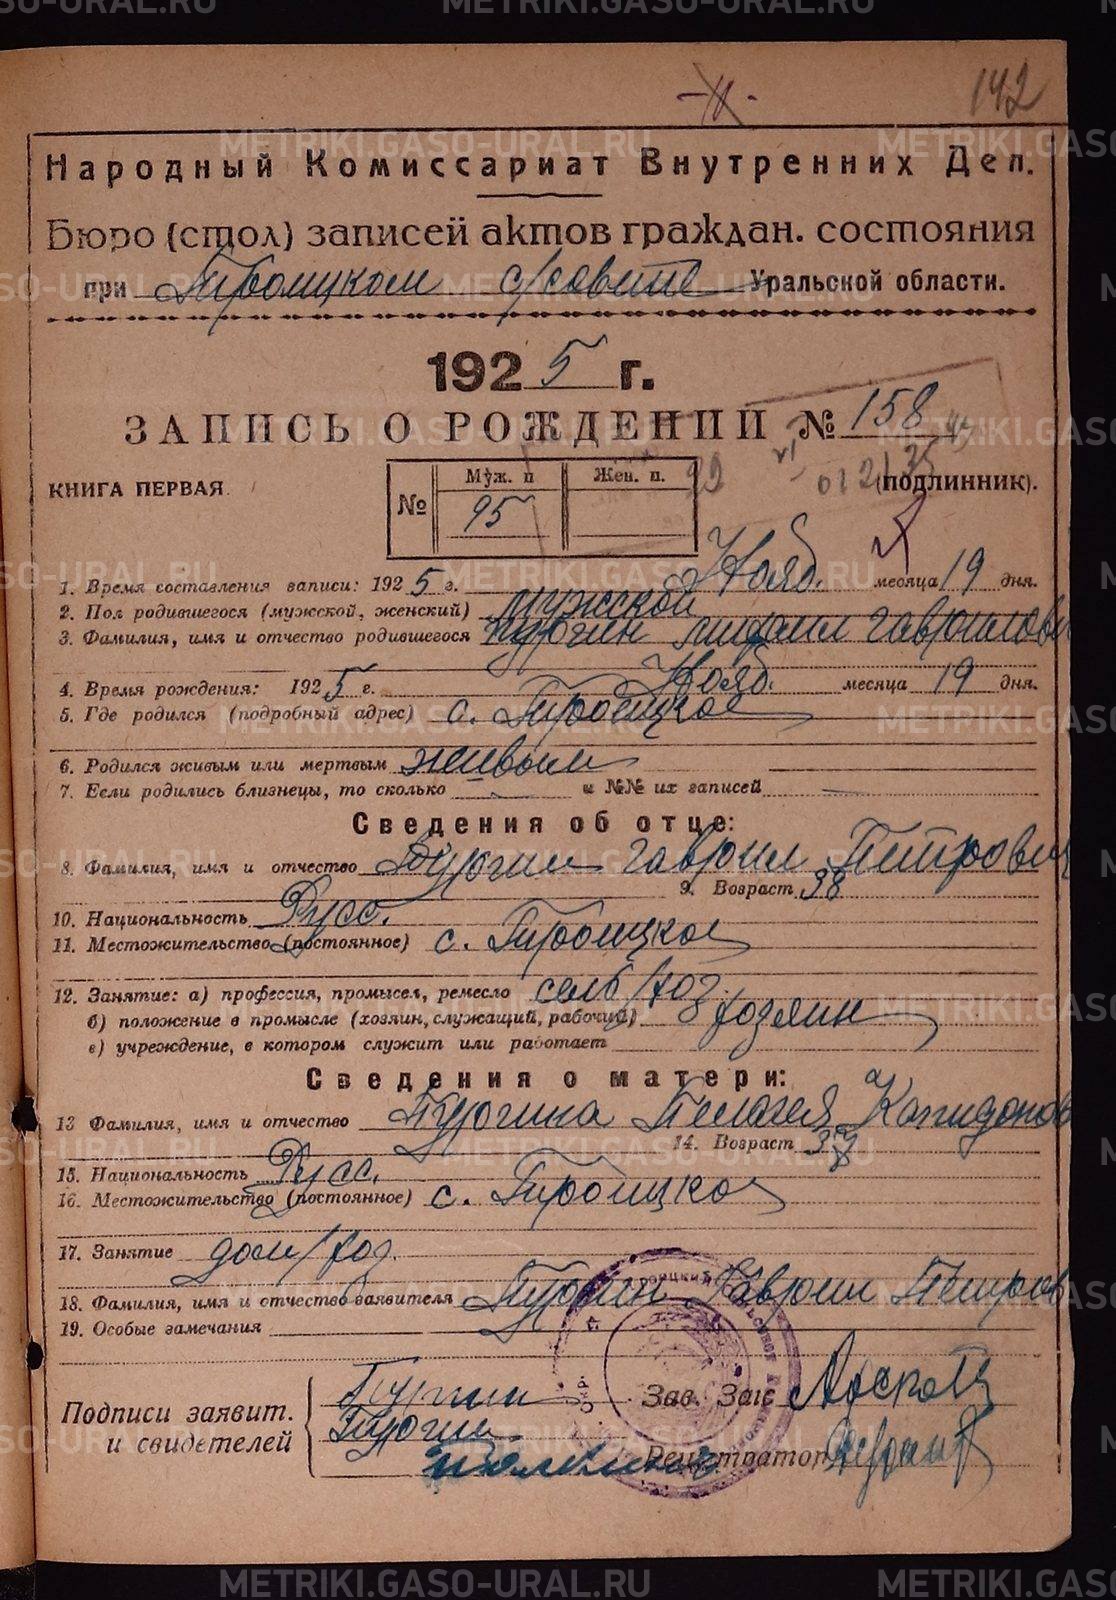 142
Народный Комиссариат Внутренних Дел.
Бюро (стол) записей актов граждан. состояния
при Троицком с/совете Уральской области.
1925 г.
ЗАПИСЬ О РОЖДЕНИИ № 158
КНИГА ПЕРВАЯ. (подлинник).
№ Муж. п Жен. п.
95
1. Время составления записи: 1925 г. Нояб. месяца 19 дня.
2. Пол родившегося (мужской, женский) мужской
3. Фамилия, имя и отчество родившегося Пургин Михаил Гаврилови
4. Время рождения: 1925 г. Нояб. месяца 19 дня.
5. Где родился (подробный адрес) с. Троицкое
6. Родился живым или мертвым живым
7. Если родились близнецы, то сколько — и №№ их записей —
Сведения об отце:
8. Фамилия, имя и отчество Пургин Гаврил Петрович
9. Возраст 38
10. Национальность Русс.
11. Местожительство (постоянное) с. Троицкое
12. Занятие: а) профессия, промысел, ремесло сель/хоз.
б) положение в промысле (хозяин, служащий, рабочий) хозяин
в) учреждение, в котором служит или работает
Сведения о матери:
13 Фамилия, имя и отчество Пургина Пелагея Капидонов
14. Возраст
15. Национальность Русс.
16. Местожительство (постоянное) с. Троицкое
17. Занятие дом/хоз.
18. Фамилия, имя и отчество заявителя Пургин Гаврил Петров
19. Особые замечания
Подписи заявит. и свидетелей
Пургин
Пургин
Зав. Загс
Регистратор
METRIKI.GASO-URAL.RU